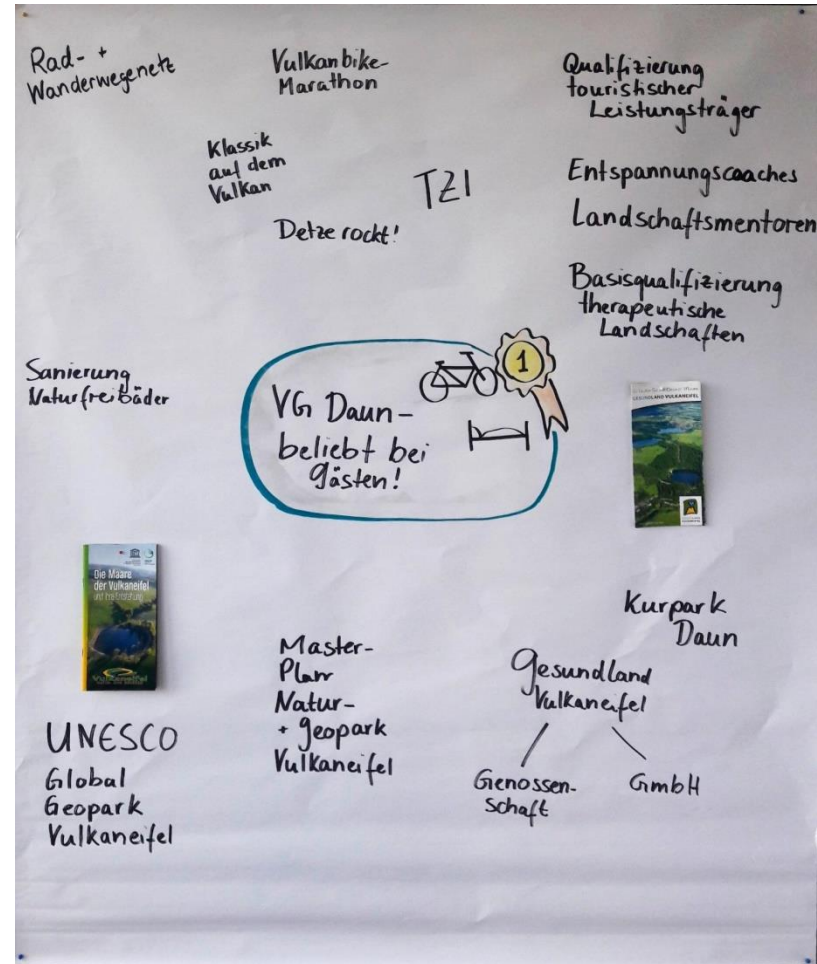 Rad- +
Wanderwegenetz
Vulkanbike-
Marathon
Qualifizierung
touristischer
Leistungsträger
Klassik
auf dem
Vulkan
TZI
Detze rockt!
Entspannungscoaches
Landschaftsmentoren
Basisqualifizierung
therapeutische
Landschaften
Sanierung
Naturfreibäder
1
VG Daun-
beliebt bei
Gästen!
GESUNDLAND VULKANEIFEL
Die Maare
der Vulkaneifel
und ihre Entstehung
Vulkaneifel
Kurpark
Daun
Master-
Plan
Natur-
+ Geopark
Vulkaneifel
Gesundland
Vulkaneifel
Genossen-
schaft
GmbH
UNESCO
Global
Geopark
Vulkaneifel